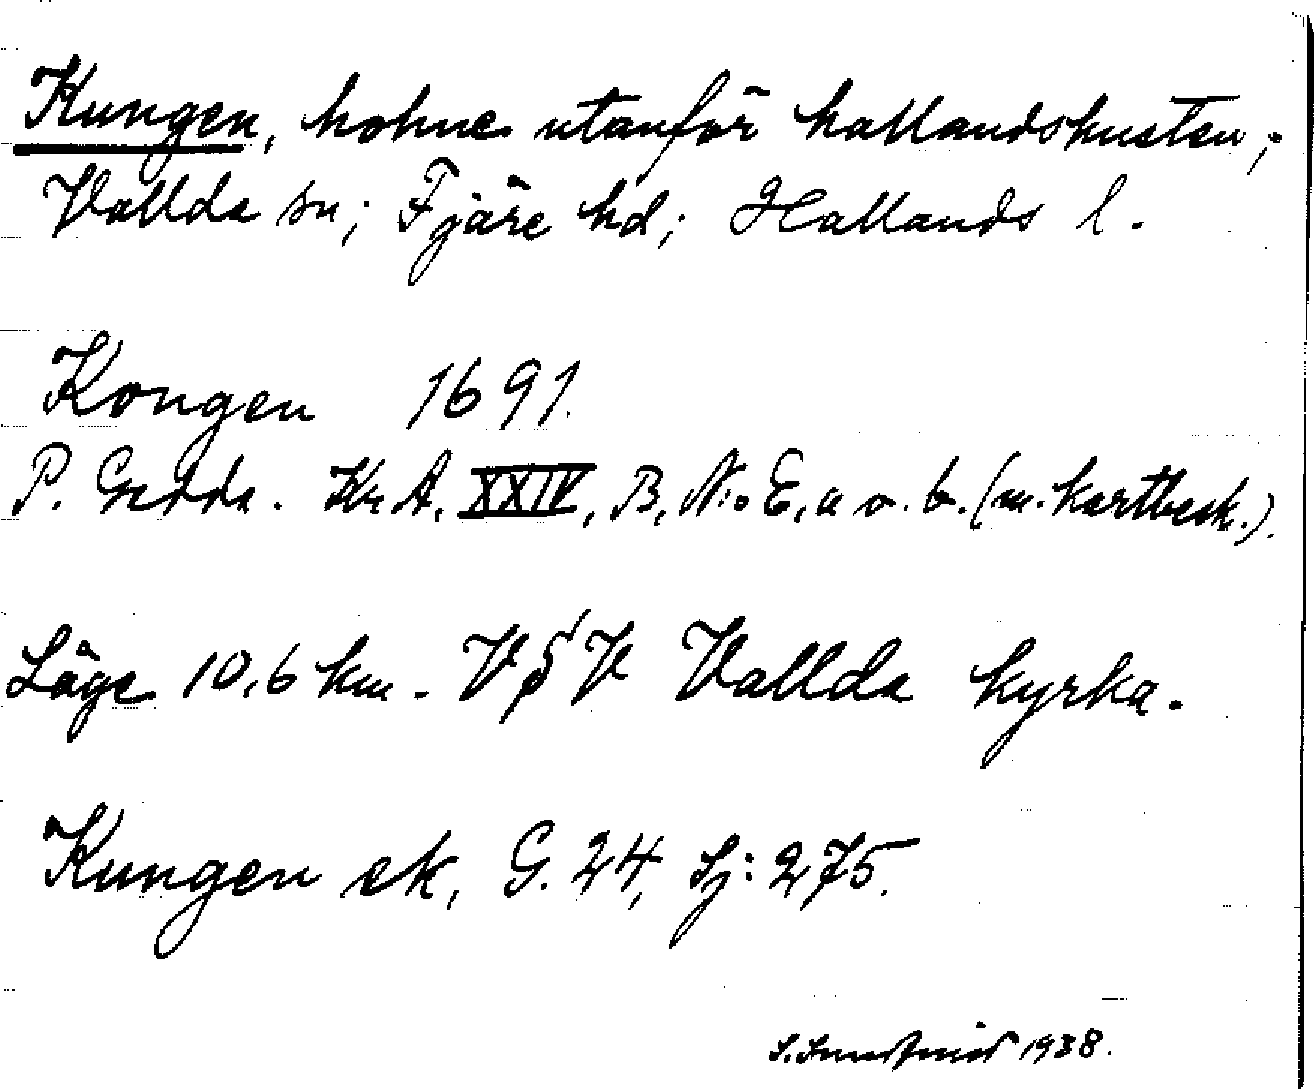 Kungen, holme utanför hallandskusten;
Vallda sn; Fjäre hd; Hallands l.
Kongen 1691.
P. Gedda. Kr A. XXIV, B, N:o 6, a o. b. (m. kartbesk.).
Läge 10,6 km. V Vallda kyrka.
Kungen ek, G. 24, Sj: 275.
1938.